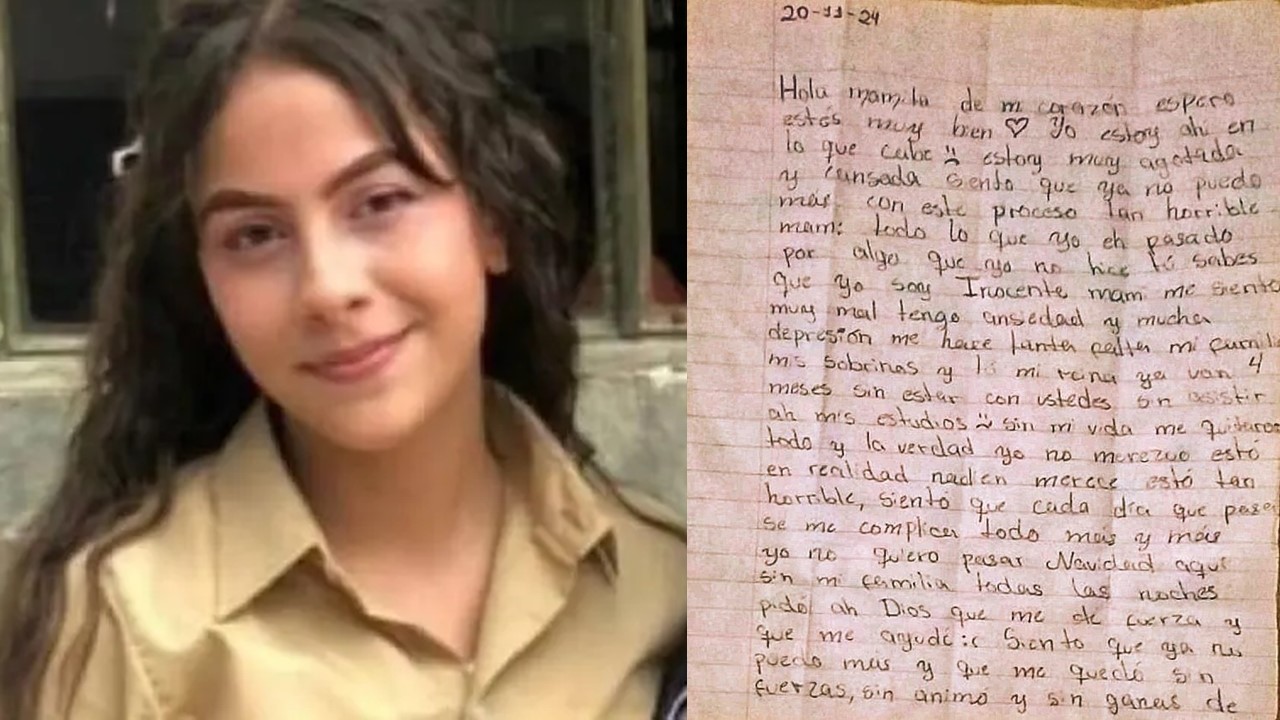 20-11-24
Hola mamita de mi corazón espero
estés muy bien ♡ Yo estoy ahi en
lo que cabe :( estoy muy agotada
y cansada siento que ya no puedo
más con este proceso tan horrible
mami todo lo que yo eh pasado
por algo que yo no hice tú sabes
que yo soy Inocente mami me siento
muy mal tengo ansedad y mucha
depresión me hace tanta falta mi famili
mis sobrinas y tú mi reina ya van 4
meses sin estar con ustedes sin asistir
ah mis estudios :( sin mi vida me quitaron
todo y la verdad yo no merezco estó
en realidad nadien merece estó tan
horrible, siento que cada día que pase
se me complica todo más y más
yo no quiero pasar Navidad aqui
sin mi familia todas las noches
pidó ah Dios que me de fuerza y
que me ayude :( Siento que ya no
puedo mas y que me quedó sin
fuerzas, sin animó y sin ganas de